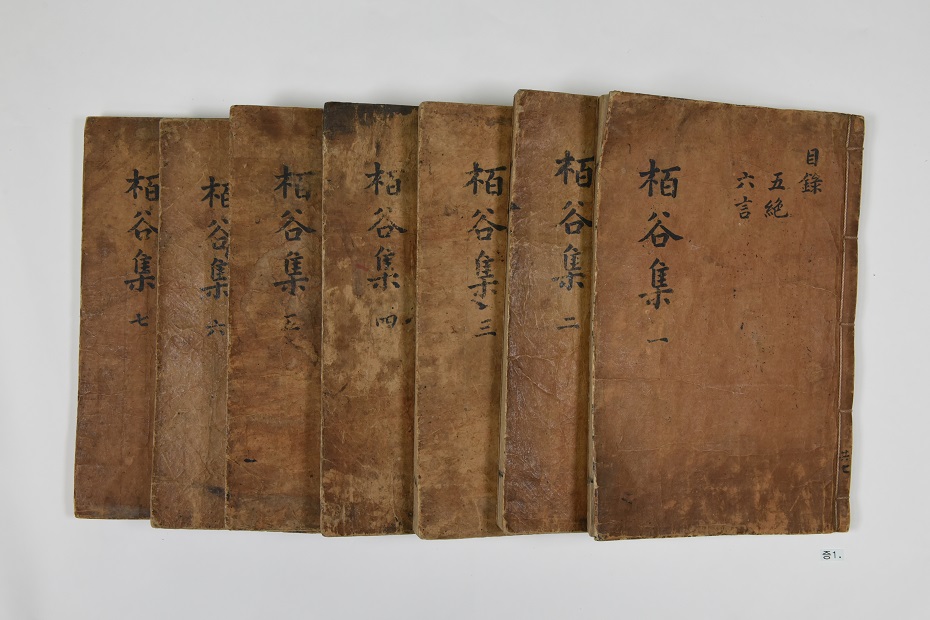 目錄
五絶
六言
栢谷集 一
栢谷集 二
栢谷集 三
栢谷集 四
栢谷集 五
栢谷集 六
栢谷集 七
共七
증1.